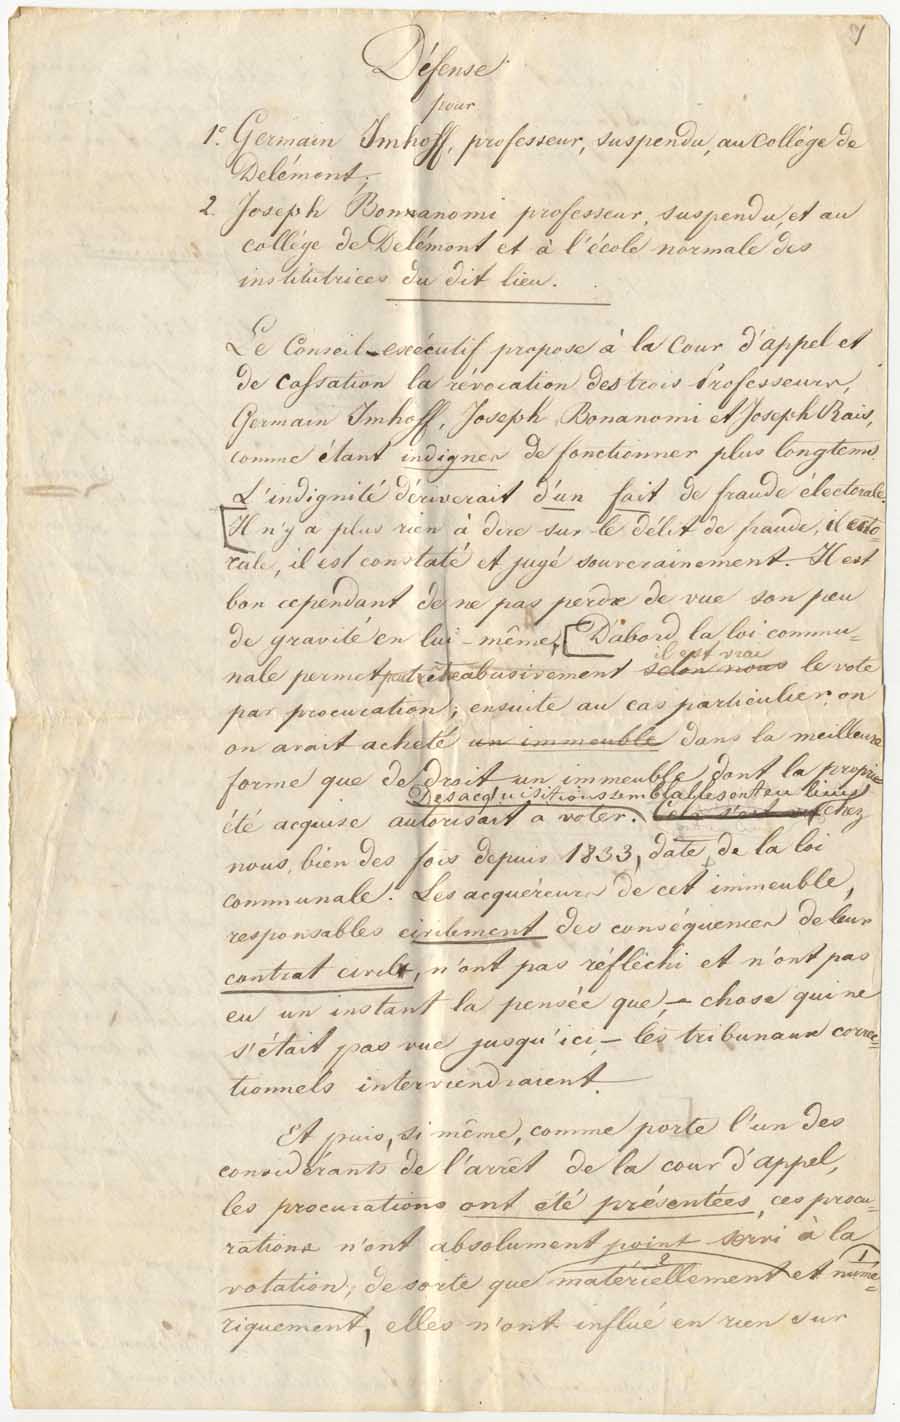 1
Défense
pour
1º. Germain Imhoff, professeur, suspendu, au Collége de
Delémont;
2. Joseph Bonanomi professeur, suspendu, et au
collége de Delémont et à l'école normale des
institutrices du dit lieu.
Le Conseil-exécutif propose à la Cour d'appel et
de cassation la révocation des trois Professeurs,
Germain Imhoff, Joseph Bonanomi et Joseph Rais,
comme étant indignes de fonctionner plus longtems.
L'indignité dériverait d'un fait de fraude électorale.
Il n'y a plus rien à dire sur le délit de fraude, il est
rale, il est constaté et jugé souverainement. Il est
bon cependant de ne pas perdre de vue son peu
de gravité en lui-même. D'abord, la loi commu-
il est vrai
nale permet peut être abusivement selon nous le vote
par procuration; ensuite au cas particulier, on
on avait acheté un immeuble dans la meilleure
forme que de droit un immeuble, dont la proprié
Des acquisitions semblables ont eu lieu
été acquise autorisait a voter. chez
nous, bien des fois depuis 1833, date de la loi
communale. Les acquéreurs de cet immeuble,
responsables civilement des conséquences de leur
contrat civil, n'ont pas réfléchi et n'ont pas
eu un instant la pensée que, — chose qui ne
s'était pas vue jusqu'ici, — les tribunaux correc=
tionnels interviendraient.
Et puis, si même, comme porte l'un des
considérants de l'arrêt de la cour d'appel,
les procurations ont été présentées, ces procu=
rations n'ont absolument point servi à la
2 1
votation; de sorte que matériellement et numé=
riquement, elles n'ont influé en rien sur